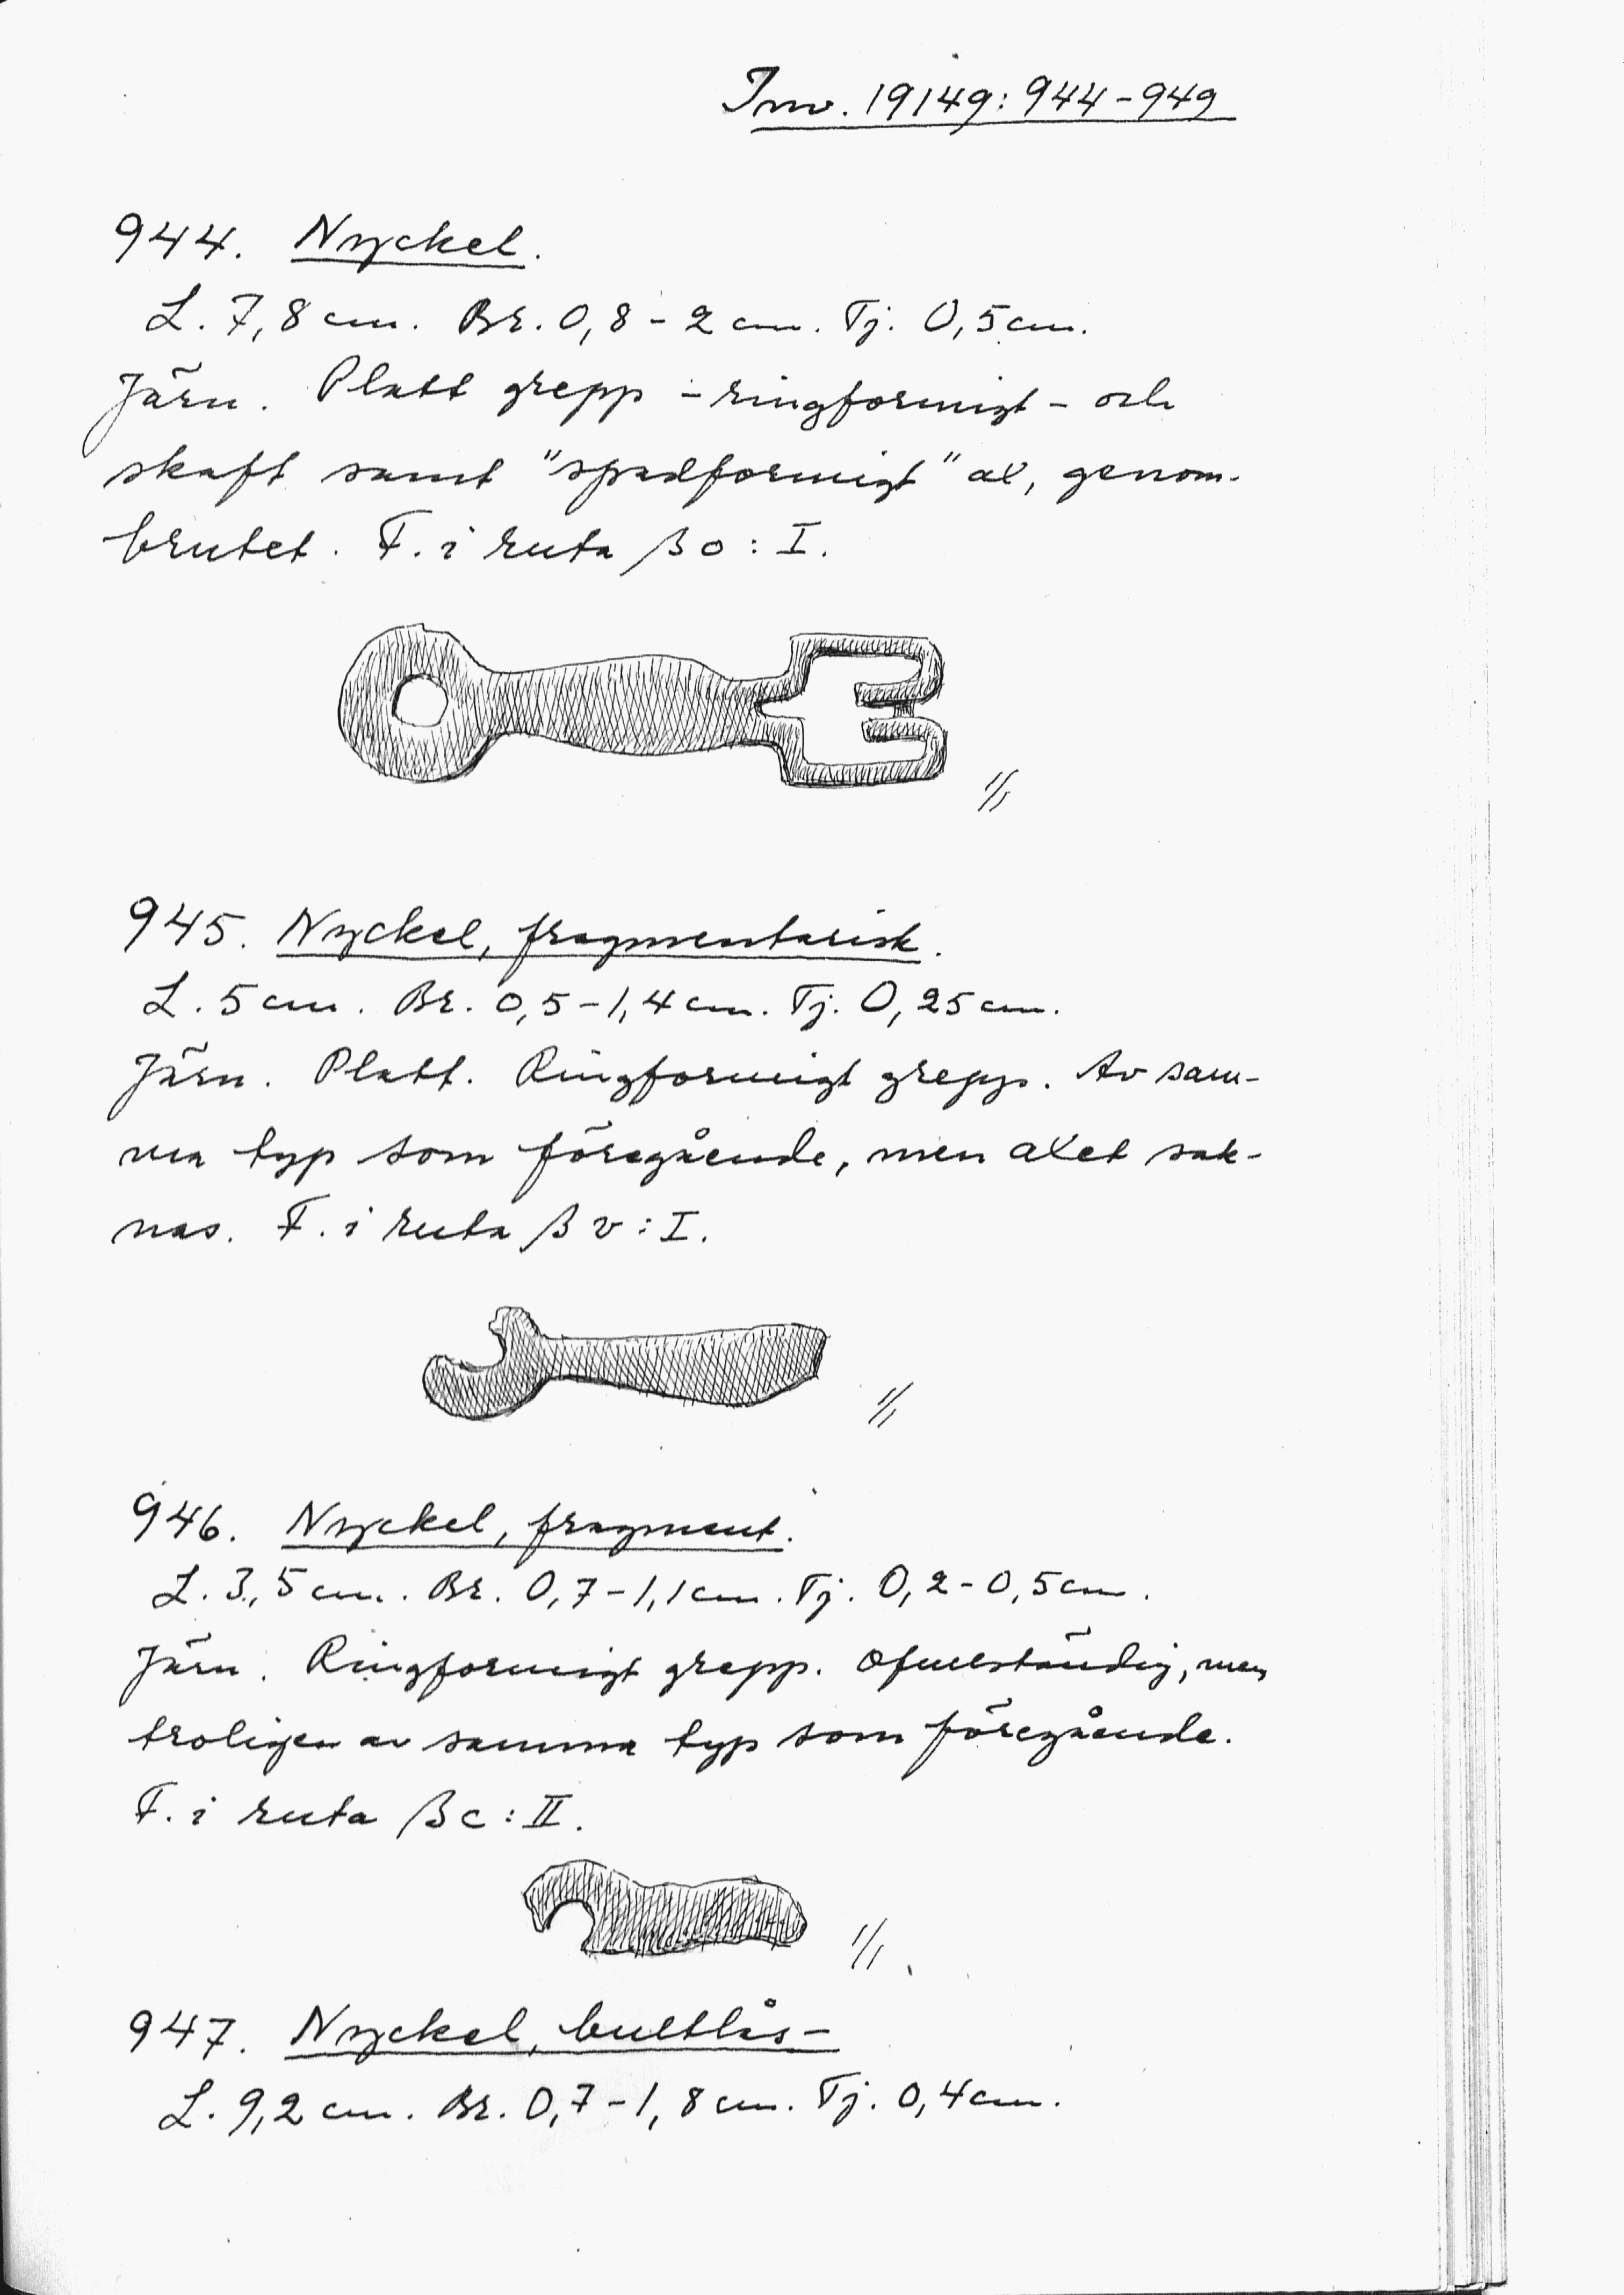 Inv. 19149: 944-949
944. Nyckel.
L. 7,8 cm. Br. 0,8 - 2 cm. Tj. 0,5 cm.
Järn. Platt grepp - ringformigt - och
skaft samt "spadformigt" ax, genom-
brutet. F. i ruta β o : I.
1/1
945. Nyckel, fragmentarisk.
L. 5 cm. Br. 0,5 - 1,4 cm. Tj. 0,25 cm.
Järn. Platt. Ringformigt grepp. Av sam-
ma typ som föregående, men axet sak-
nas. F. i ruta β v : I.
1/1
946. Nyckel, fragment.
L. 3,5 cm. Br. 0,7 - 1,1 cm. Tj. 0,2 - 0,5 cm.
Järn. Ringformigt grepp. Ofullständig, men
troligen av samma typ som föregående.
F. i ruta β c : II.
1/1
947. Nyckel, bultlås-
L. 9,2 cm. Br. 0,7 - 1,8 cm. Tj. 0,4 cm.